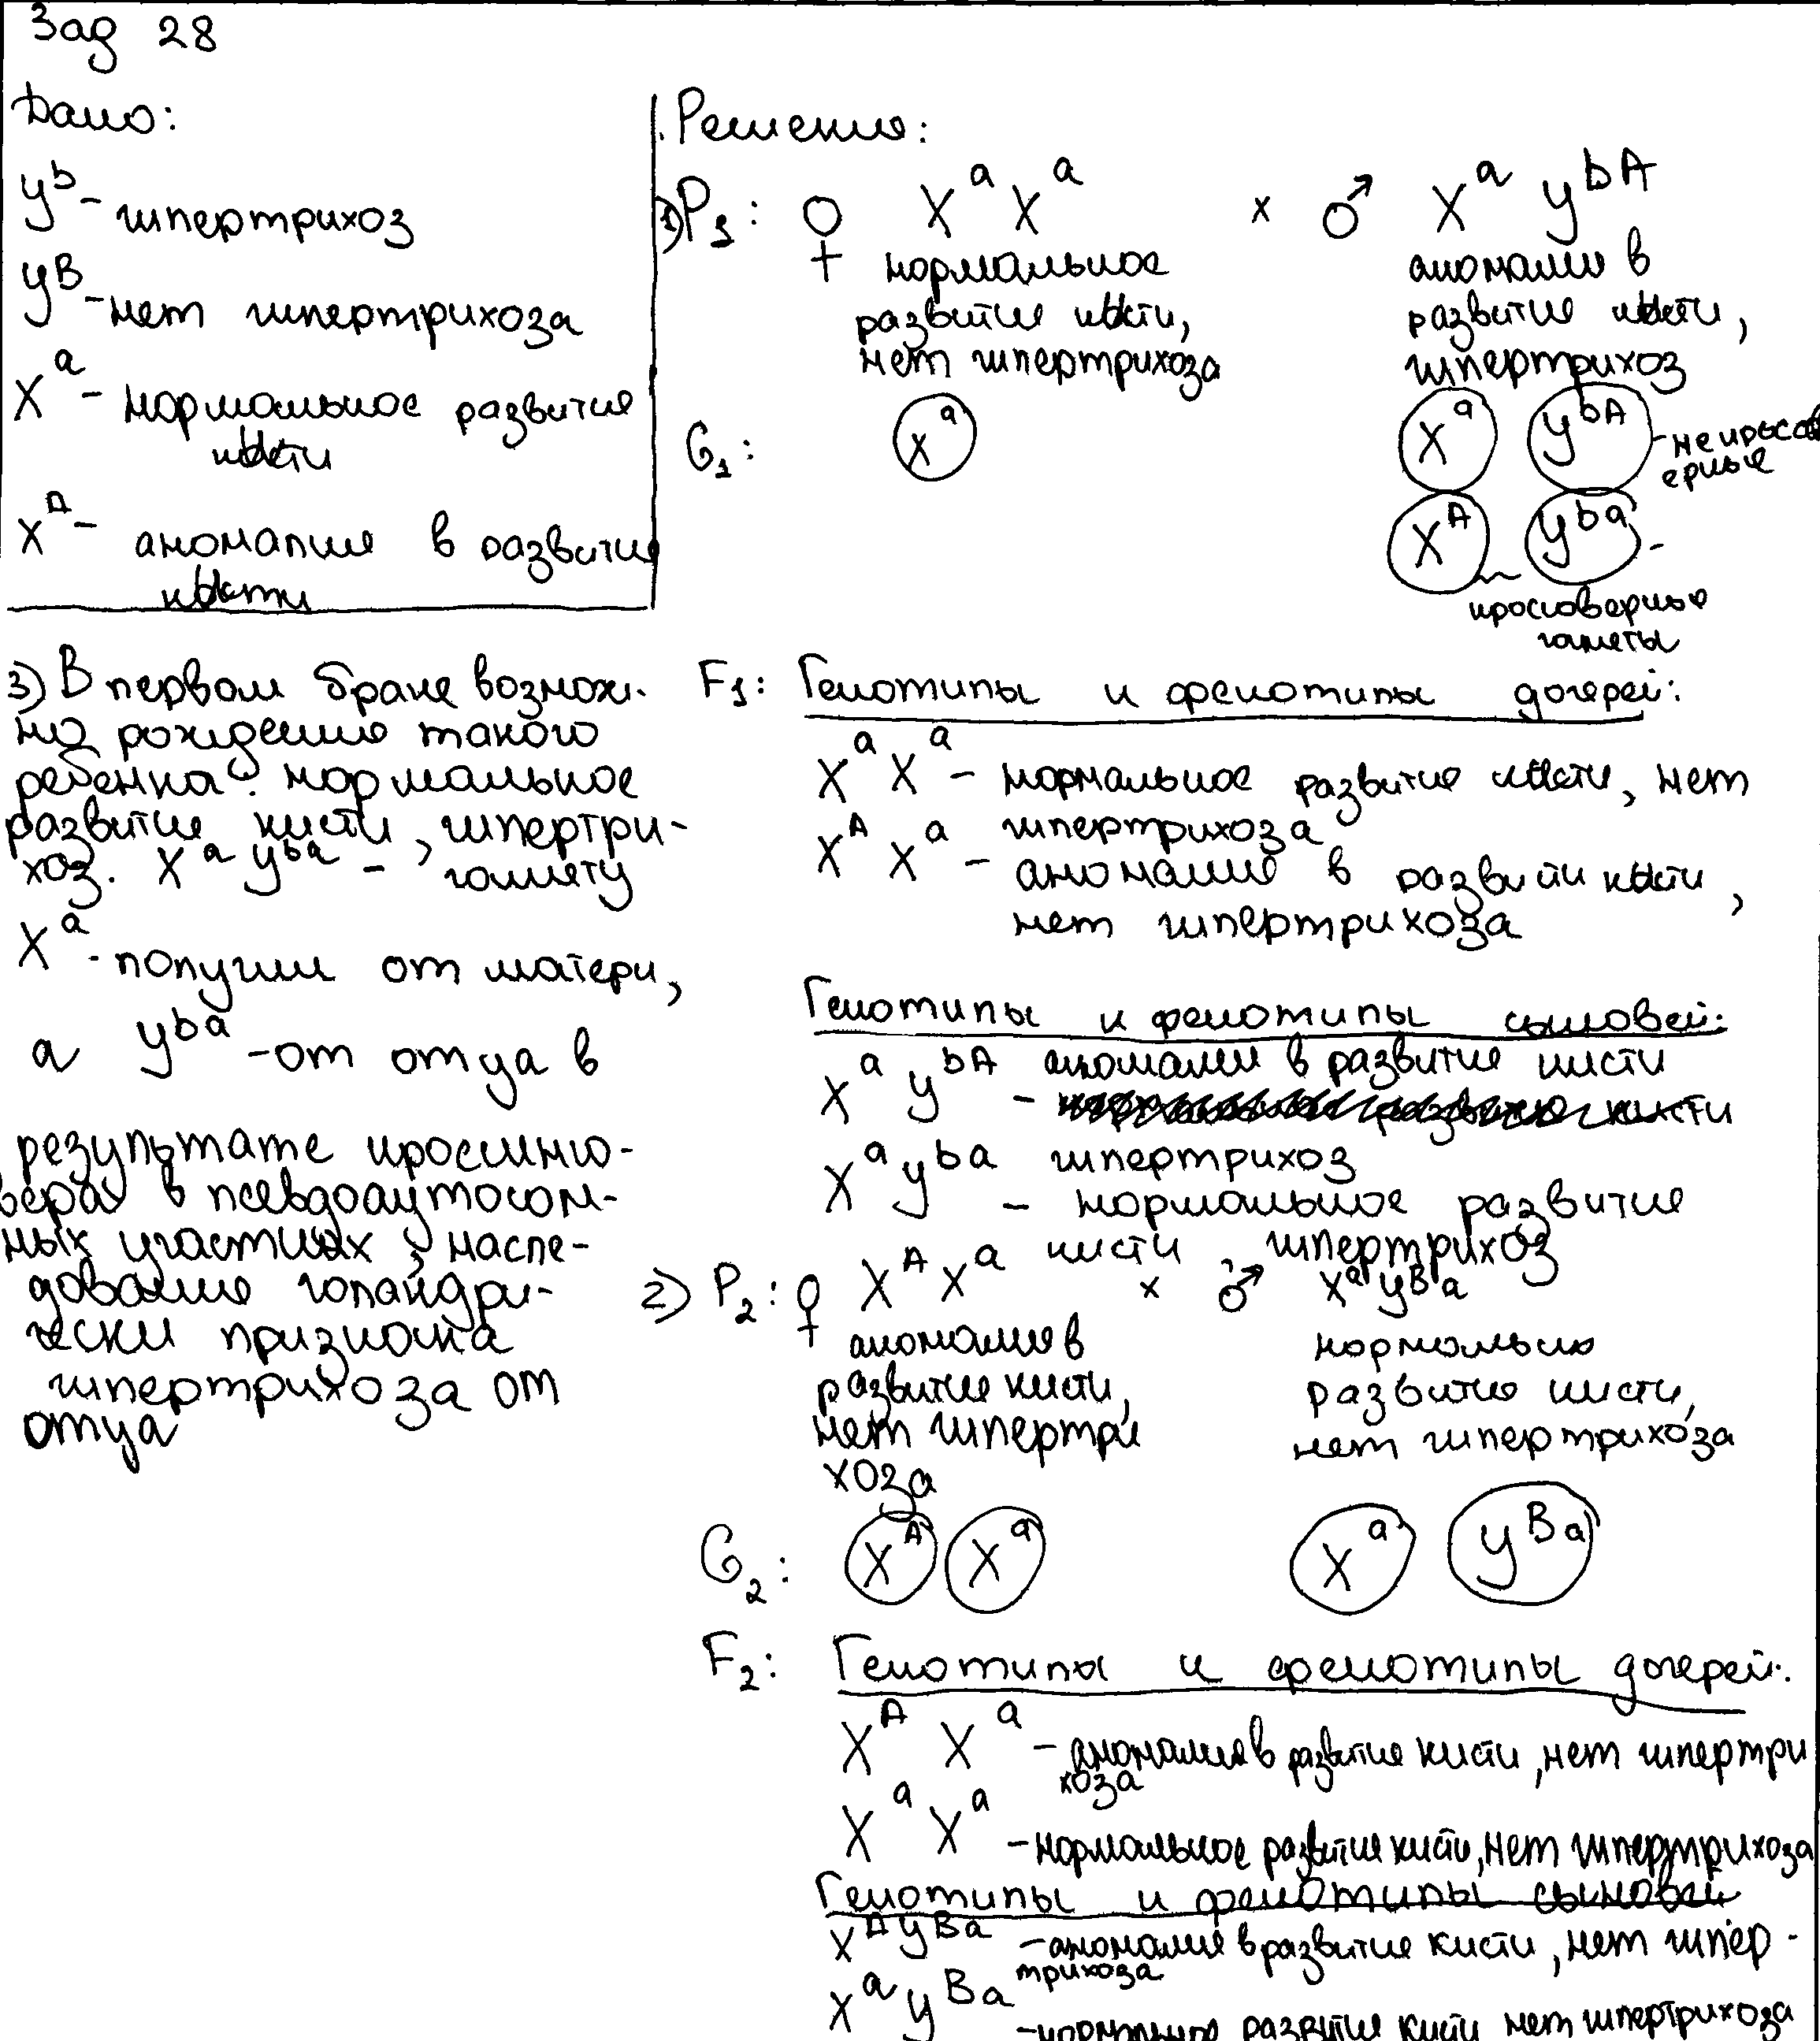 Зад 28
Дано:
y^b - гипертрихоз
y^B - нет гипертрихоза
X^a - нормальное развитие
кисти
X^A - аномалие в развитие
кисти
Решение:
1) P1: ♀ X^a X^a × ♂ X^a y^bA
нормальное аномалие в
развитие кисти, развитие кисти,
нет гипертрихоза гипертрихоз
G1: X^a X^a y^bA - некроссов
ерные
X^A y^ba -
кроссоверные
гаметы
F1: Генотипы и фенотипы дочерей:
X^a X^a - нормальное развитие кисти, нет
гипертрихоза
X^A X^a - аномалие в развитии кисти,
нет гипертрихоза
Генотипы и фенотипы сыновей:
X^a y^bA аномалие в развитие кисти
- кисти
гипертрихоз
X^a y^ba - нормальное развитие
кисти, гипертрихоз
2) P2: ♀ X^A X^a × ♂ X^a y^Ba
аномалие в нормально
развитие кисти, развитие кисти,
нет гипертри нет гипертрихоза
хоза
G2: X^A X^a X^a y^Ba
F2: Генотипы и фенотипы дочерей:
X^A X^a - аномалия в развитие кисти, нет гипертри
хоза
X^a X^a - нормальное развитие кисти, нет гипертрихоза
Генотипы и фенотипы сыновей
X^A y^Ba - аномалие в развитие кисти, нет гипер-
трихоза
X^a y^Ba - нормальное развитие кисти нет гипертрихоза
3) В первом браке возмож-
но рождение такого
ребенка: нормальное
развитие кисти, гипертри-
хоз. X^a y^ba - гамету
X^a - получил от матери,
а y^ba - от отца в
результате
в псевдоаутосом-
ных участках, насле-
дование голандри-
чески признака
гипертрихоза от
отца